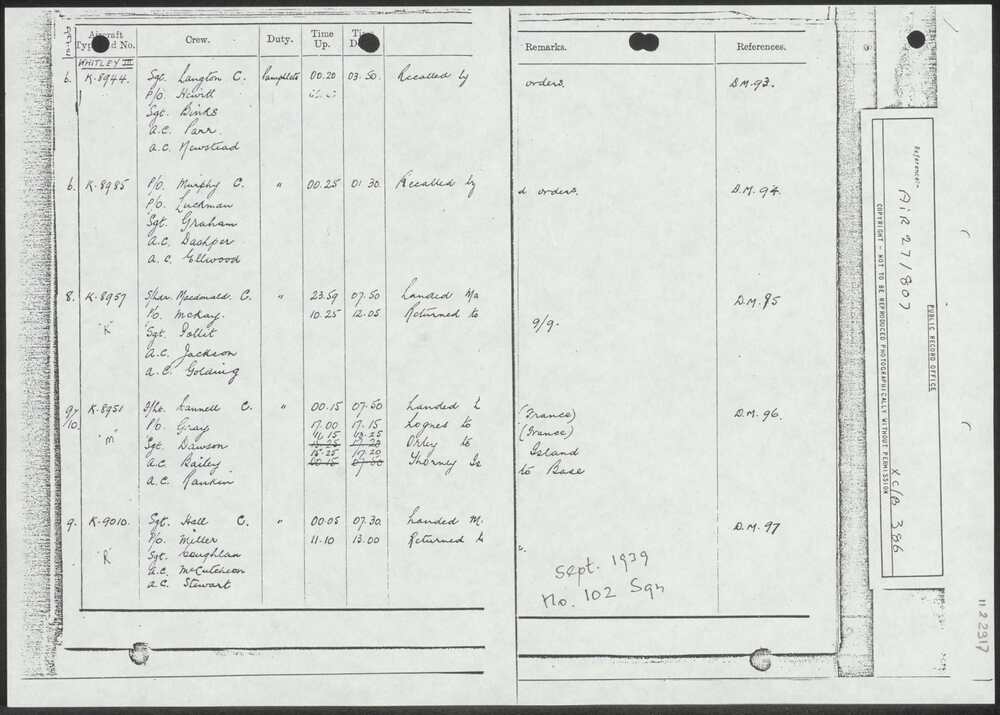 Aircraft Crew. Duty. Time Time Remarks. References.
No. Up.
WHITLEY III
6. K-8944. Sgt. Langton C. Pamphlets 00.20 03.50. Recalled by orders. D.M.93.
P/O. Hewitt
Sgt. Binks
A.C. Parr.
A.C. Newstead
6. K-8985 P/O. Murphy C. " 00.25 01.30. Recalled by d orders. D.M. 94.
P/O. Luckman
Sgt. Graham
A.C. Dashper
A.C. Ellwood
8. K-8957 S/Ldr. Macdonald. C. " 23.59 07.50 Landed Ma D.M. 95
"K" P/O. McKay. 10.25 12.05 Returned to 9/9.
Sgt.
A.C. Jackson
A.C. Golding
9/10. K-8951 F/Lt. Cannell C. " 00.15 07.50 Landed (France) D.M. 96.
"M" P/O. Gray 17.00 17.15 Lognes to (France)
11.15 13.25
Sgt. Dawson Orley to Island
15.25 17.20
A.C. Bailey Thorney Is to Base
A.C. Rankin
9. K-9010. Sgt. Hall C. " 00.05 07.30. Landed M. D.M. 97
"R" P/O. Miller 11.10 13.00 Returned
Sgt. Coughlan
A.C. McCutcheon
A.C. Stewart
Sept. 1939
No. 102 Sqn
Reference:-
AIR 27/807
PUBLIC RECORD OFFICE
COPYRIGHT - NOT TO BE REPRODUCED PHOTOGRAPHICALLY WITHOUT PERMISSION
XC/B 386